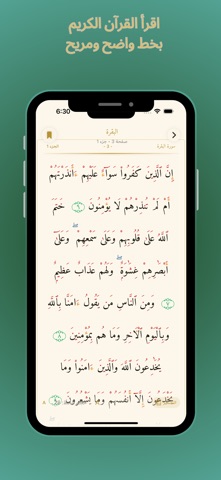 اقرأ القرآن الكريم
بخط واضح ومريح
6:30
البقرة
سورة البقرة
صفحة 3 - جزء 1
إِنَّ ٱلَّذِينَ كَفَرُوا۟ سَوَآءٌ عَلَيْهِمْ ءَأَنذَرْتَهُمْ
أَمْ لَمْ تُنذِرْهُمْ لَا يُؤْمِنُونَ ٦ خَتَمَ
ٱللَّهُ عَلَىٰ قُلُوبِهِمْ وَعَلَىٰ سَمْعِهِمْ ۖ وَعَلَىٰٓ
أَبْصَٰرِهِمْ غِشَٰوَةٌ ۖ وَلَهُمْ عَذَابٌ عَظِيمٌ
٧ وَمِنَ ٱلنَّاسِ مَن يَقُولُ ءَامَنَّا بِٱللَّهِ
وَبِٱلْيَوْمِ ٱلْءَاخِرِ وَمَا هُم بِمُؤْمِنِينَ ٨
يُخَٰدِعُونَ ٱللَّهَ وَٱلَّذِينَ ءَامَنُوا۟ وَمَا
يَخْدَعُونَ إِلَّآ أَنفُسَهُمْ وَمَا يَشْعُرُونَ ٩